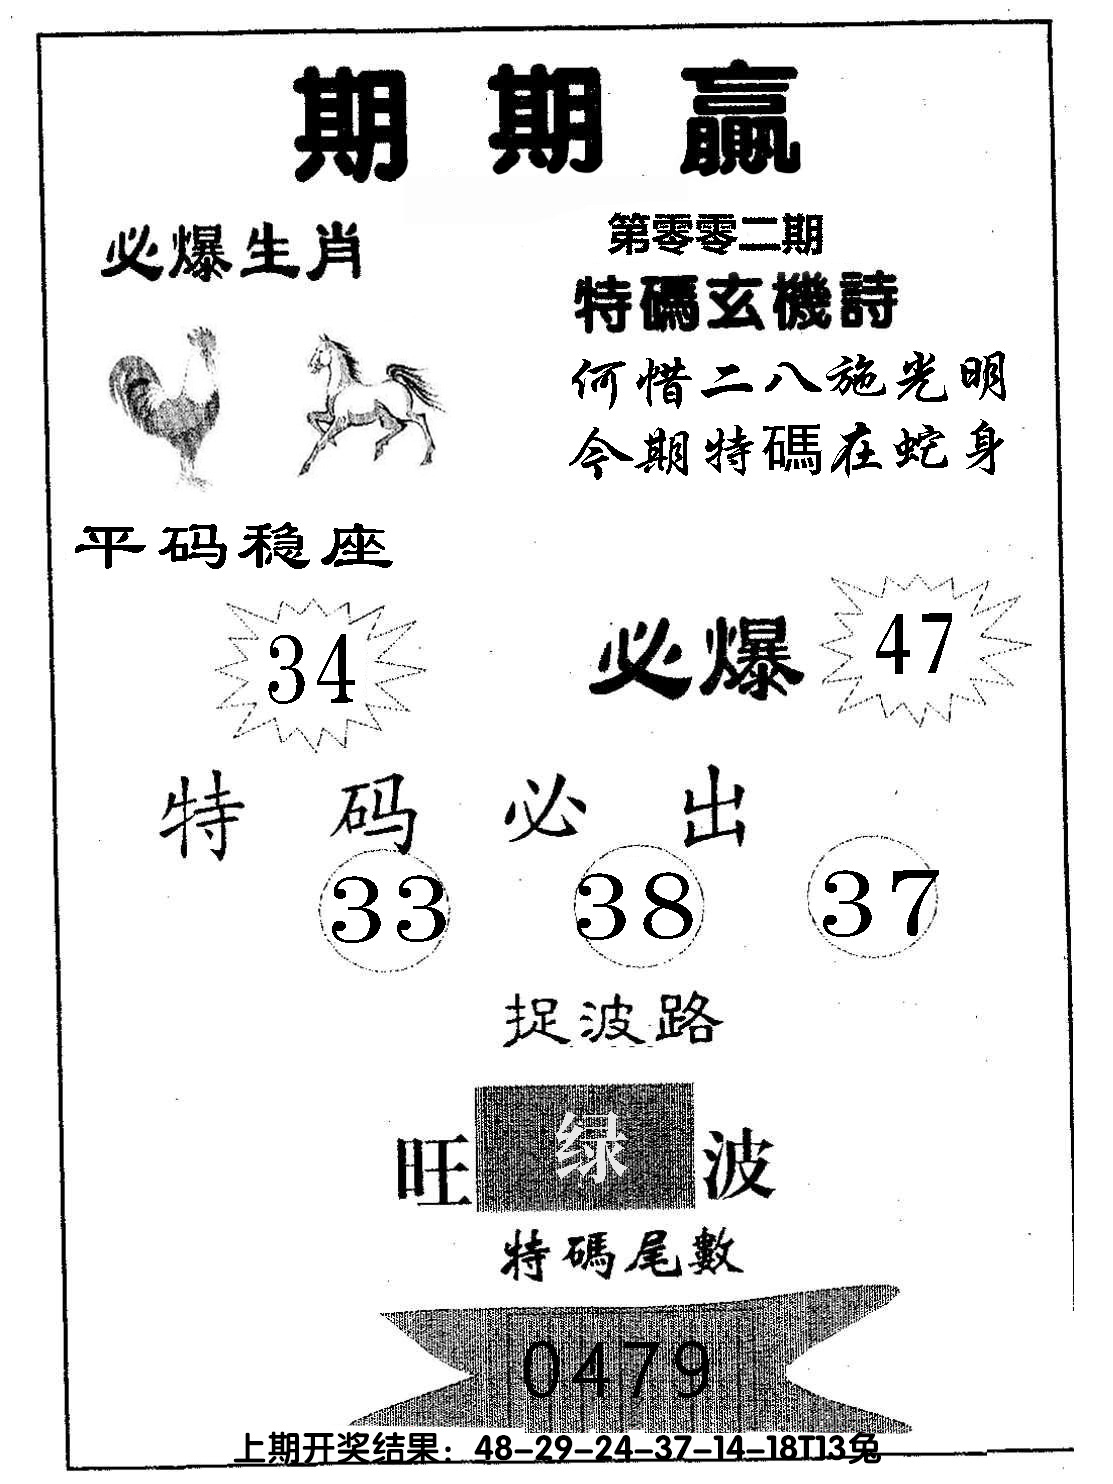 期期赢
必爆生肖
第零零二期
特碼玄機詩
何惜二八施光明
今期特碼在蛇身
平码稳座
34
必爆
47
特码必出
33 38 37
捉波路
旺绿波
特碼尾數
0479
上期开奖结果：48-29-24-37-14-18T13兔